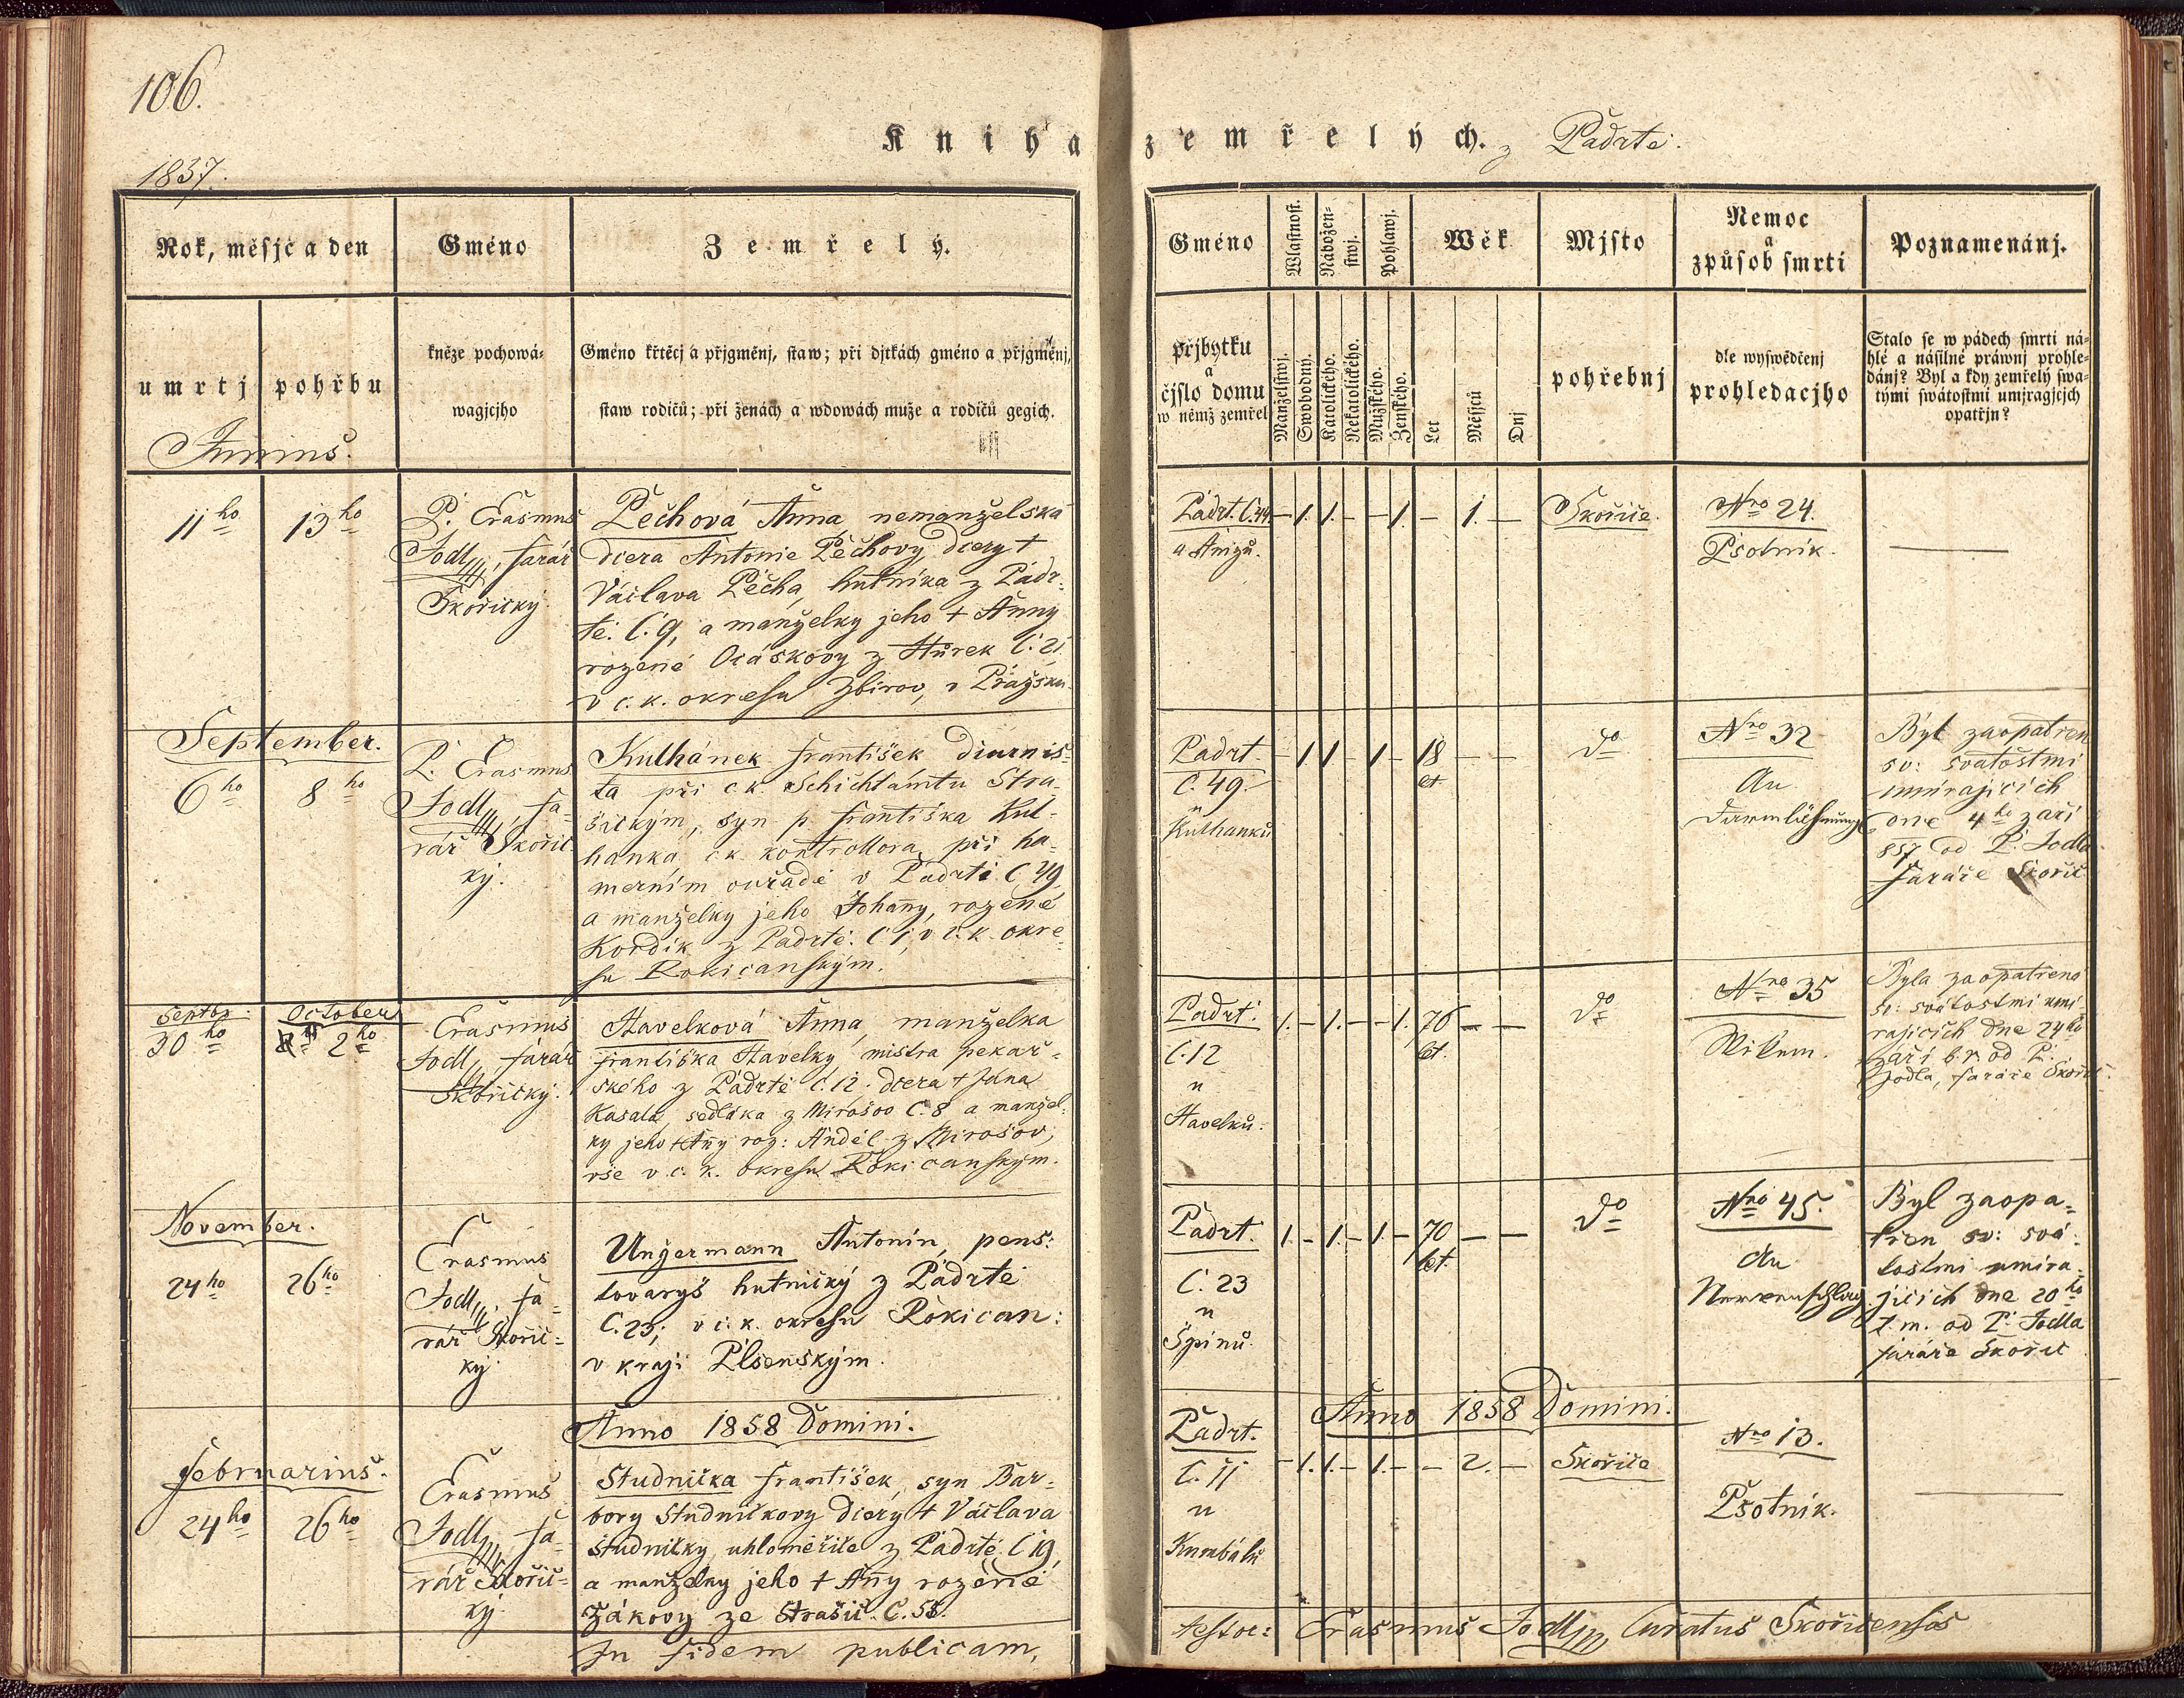 106.
Kniha zemřelých. z Padrtě.
1857.
Rok, měsjc a den
Gméno
Zemřelý.
umrtj
pohřbu
kněze pochowá-
wagjcjho
Gméno křtěcj a přjgměnj, staw; při djtkách gméno a přjgměnj,
staw rodičů; při ženách a wdowách muže a rodičů gegich.
Junius.
11 ho
13 ho
P. Erasmus
Jodl, farář
Skořický.
Pechová Anna, nemanželská
dcera Antonie Pechovy, dcery †
Václava Pecha, hutníka z Padr-
tě. C. 9, a manželky jeho † Anny
rozené Oráskovy z Hůrek C. 21
v c. k. okresu Zbirov, v Pražsku.
September.
6 ho
8 ho
P. Erasmus
Jodl, fa-
rář Skořic-
ký.
Kulhánek František diurnis-
ta při c k. Schichtamtu Stra-
šickým, syn p. Františka Kul-
hanka c. k. kontrollora při ha-
merním ouřadě v Padrti C 49
a manželky jeho Johany, rozené
Kordik z Padrtě. C 1, v c. k. okre-
su Rokicanským.
Septbr:
October
30 ho
2 ho
Erasmus
Jodl, farář
Skořický.
Havelková Anna, manželka
Františka Havelky mistra pekař-
ského z Padrtě C. 12. dcera † Jana
Kasala, sedláka z Mirošov C. 8 a manžel-
ky jeho † Any roz: Anděl z Mirošov,
vše v c. k. okresu Rokicanským.
November.
24 ho
26 ho
Erasmus
Jodl, fa-
rář Skořic-
ký.
Ungermann Antonín, pens:
tovaryš hutnický z Padrtě
C. 23; v c. k. okresu Rokican:
v kraji Plsenským.
Anno 1858 Domini.
Februarius.
24 ho
26 ho
Erasmus
Jodl, fa-
rář Skořic-
ký.
Studnička František, syn Bar-
bory Studničkovy dcery † Václava
Studničky, uhloměřiče z Padrtě C 19,
a manželky jeho † Any rozené
Žákovy ze Strašic. C. 55.
In fidem publicam,
Gméno
Wlastnost.
Nábožen-
stwj.
Pohlawj.
Wěk
Mjsto
Nemoc
a
způsob smrti
Poznamenánj.
přjbytku
a
čjslo domu
w němž zemřel
Manželstwj.
Swobodný.
Katolického.
Nekatolického.
Mužského.
Ženského.
Let
Měsjců
Dnj
pohřebnj
dle wyswědčenj
prohledacjho
Stalo se w pádech smrti ná-
hlé a násilné práwnj prohle-
dánj? Byl a kdy zemřelý swa-
tými swátostmi umjragjcjch
opatřjn?
Padrt. C. 44
1. 1. — 1. — 1. —
Skořice.
Nro 24.
Psotník.
Padrt
C. 49.
u
Kulhanků
— 1 1 — 1 — 18 — —
let
do
Nro 32
An
Darmlähmung
Byl zaopatřen
sv: svátostmi
umírajících
dne 4ho září
857 od P. Jodla
faráře Skořic
Padrt.
C. 12
u
Havelků.
1. — 1. — — 1. 76 — —
let.
do
Nro 35
Byla zaopatřena
sv: svátostmi umí-
rajících dne 24ho
září b. r. od P.
Jodla, faráře Skořic.
Padrt.
C. 23
u
Špinů.
1. — 1. — 1. — 70 — —
let.
do
Nro 45.
An
Nervenschlag
Byl zaopa-
třen sv: svá-
tostmi umíra-
jících dne 20ho
t. m. od P. Jodla
faráře Skořic
Anno 1858 Domini.
Padrt.
C. 11
u
Kumbálů
— 1. 1. — 1. — — 2. —
Skořice
Nro 13.
Psotník.
testor: Erasmus Jodl, Curatus Skořicensis